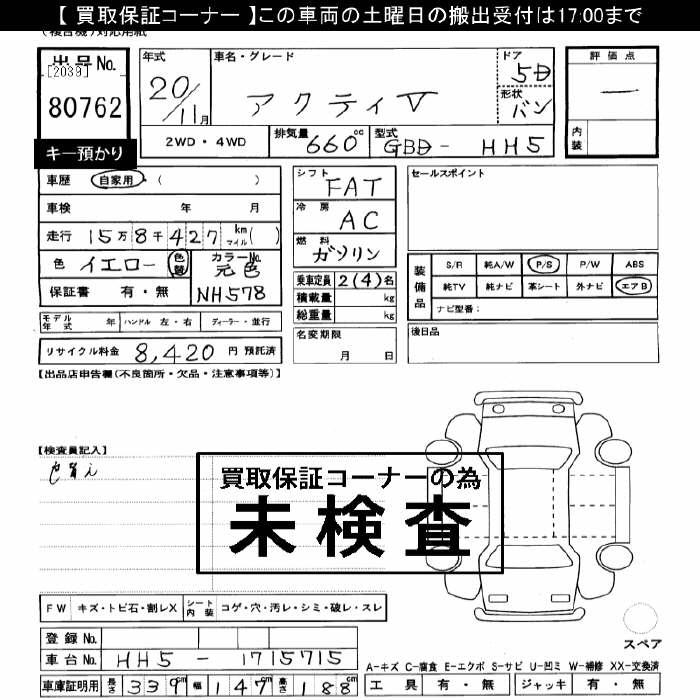 【 買取保証コーナー 】この車両の土曜日の搬出受付は17:00まで
出品No.
[2039]
80762
キー預かり
年式
20/11月
車名・グレード
アクティ V
ドア
5D
形状
バン
評価点
一
内装
2WD・4WD
排気量 660cc
型式 GBD- HH5
車歴 自家用・( )
車検 年 月
走行 15万8千427 km マイル( )
色 イエロー 色替
カラーNo.
元色
保証書 有・無
NH578
モデル年式 年 ハンドル 左・右 ディーラー・並行
リサイクル料金 8,420 円 預託済
シフト
FAT
冷房
AC
燃料
ガソリン
乗車定員 2(4)名
積載量 kg
総重量 kg
名変期限
月 日
セールスポイント
装備品
S/R 純A/W P/S P/W ABS
純TV 純ナビ 革シート 外ナビ エアB
ナビ型番:
後日品
【出品店申告欄(不良箇所・欠品・注意事項等)】
【検査員記入】
買取保証コーナーの為
未検査
FW キズ・トビ石・割レX シート内装 コゲ・穴・汚レ・シミ・破レ・スレ
登録No.
車台No. HH5 - 1715715
車庫証明用 長さ 339cm 幅 147cm 高さ 188cm
スペア
A-キズ C-腐食 E-エクボ S-サビ U-凹ミ W-補修 XX-交換済
工具 有・無 ジャッキ 有・無